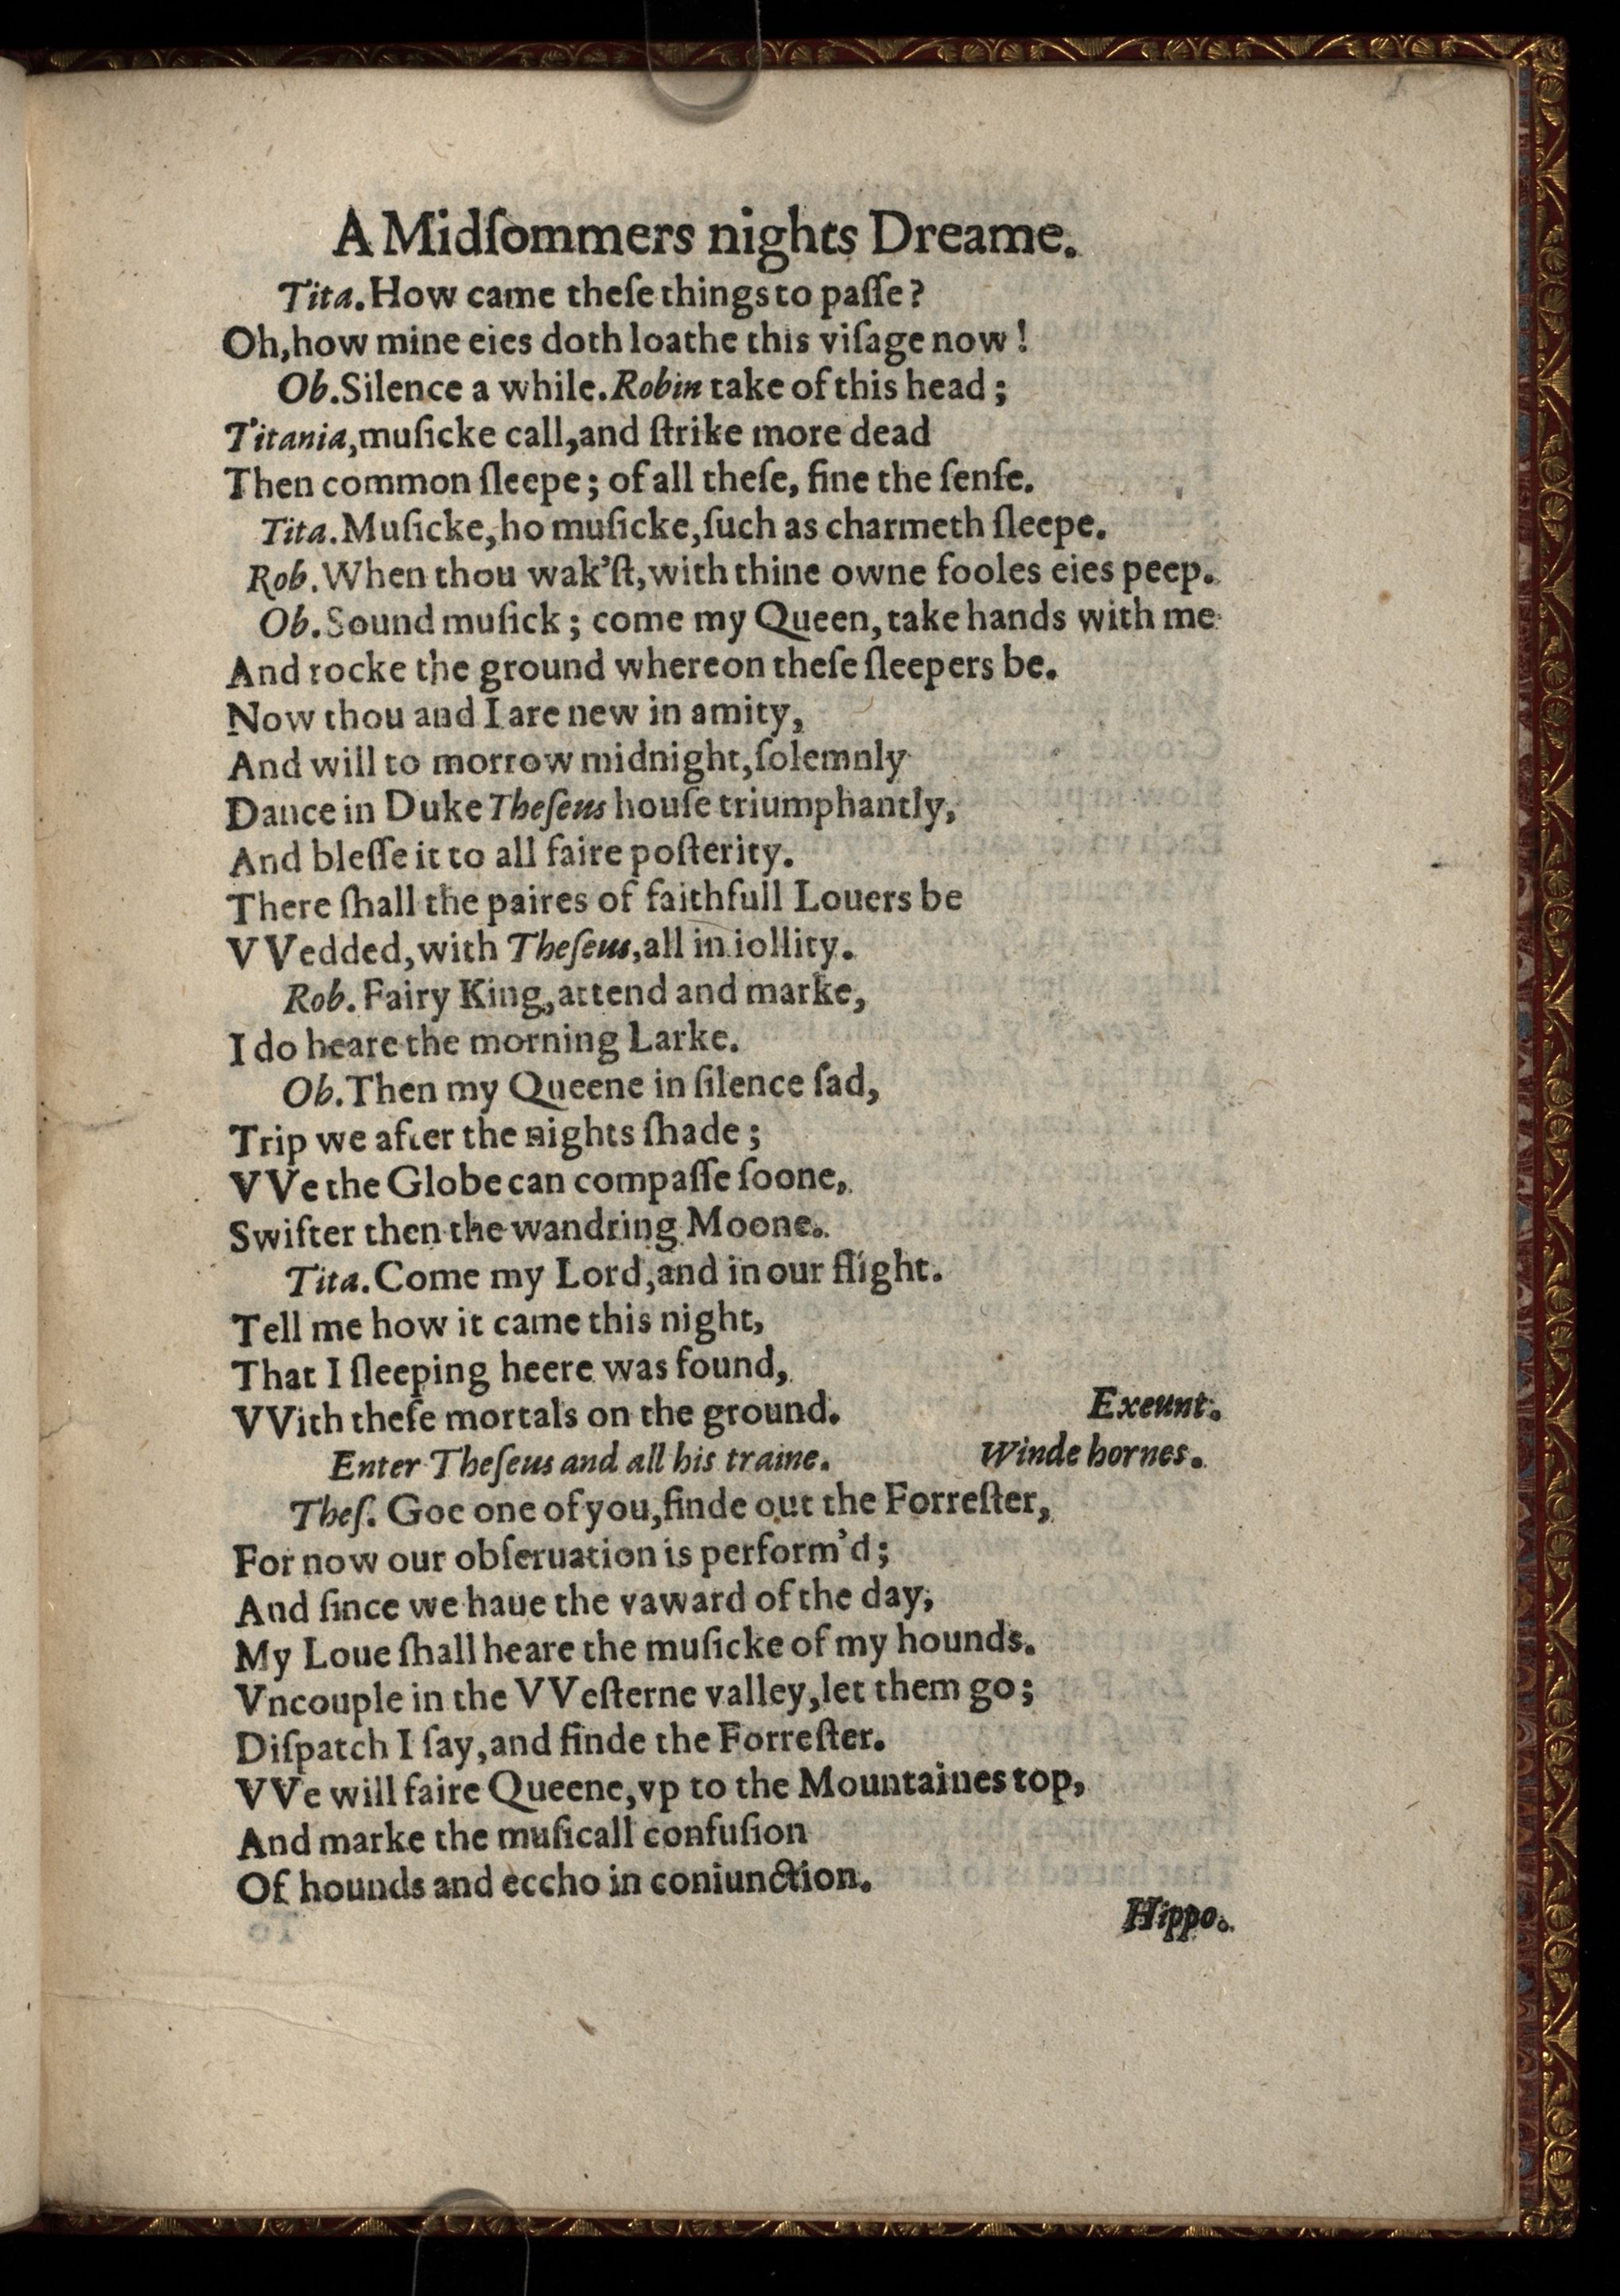 A Midſommers nights Dreame.
Tita. How came theſe things to paſſe?
Oh, how mine eies doth loathe this viſage now!
Ob. Silence a while. Robin take of this head;
Titania, muſicke call, and ſtrike more dead
Then common ſleepe; of all theſe, fine the ſenſe.
Tita. Muſicke, ho muſicke, ſuch as charmeth ſleepe.
Rob. When thou wak'ſt, with thine owne fooles eies peep.
Ob. Sound muſick; come my Queen, take hands with me
And rocke the ground whereon theſe ſleepers be.
Now thou and I are new in amity,
And will to morrow midnight, ſolemnly
Dance in Duke Theſeus houſe triumphantly,
And bleſſe it to all faire poſterity.
There ſhall the paires of faithfull Louers be
VVedded, with Theſeus, all in iollity.
Rob. Fairy King, attend and marke,
I do heare the morning Larke.
Ob. Then my Queene in ſilence ſad,
Trip we after the nights ſhade;
VVe the Globe can compaſſe ſoone,
Swifter then the wandring Moone.
Tita. Come my Lord, and in our flight.
Tell me how it came this night,
That I ſleeping heere was found,
VVith theſe mortals on the ground. Exeunt.
Enter Theſeus and all his traine. Winde hornes.
Theſ. Goe one of you, finde out the Forreſter,
For now our obſeruation is perform'd;
And ſince we haue the vaward of the day,
My Loue ſhall heare the muſicke of my hounds.
Vncouple in the VVeſterne valley, let them go;
Diſpatch I ſay, and finde the Forreſter.
VVe will faire Queene, vp to the Mountaines top,
And marke the muſicall confuſion
Of hounds and eccho in coniunction.
Hippo.